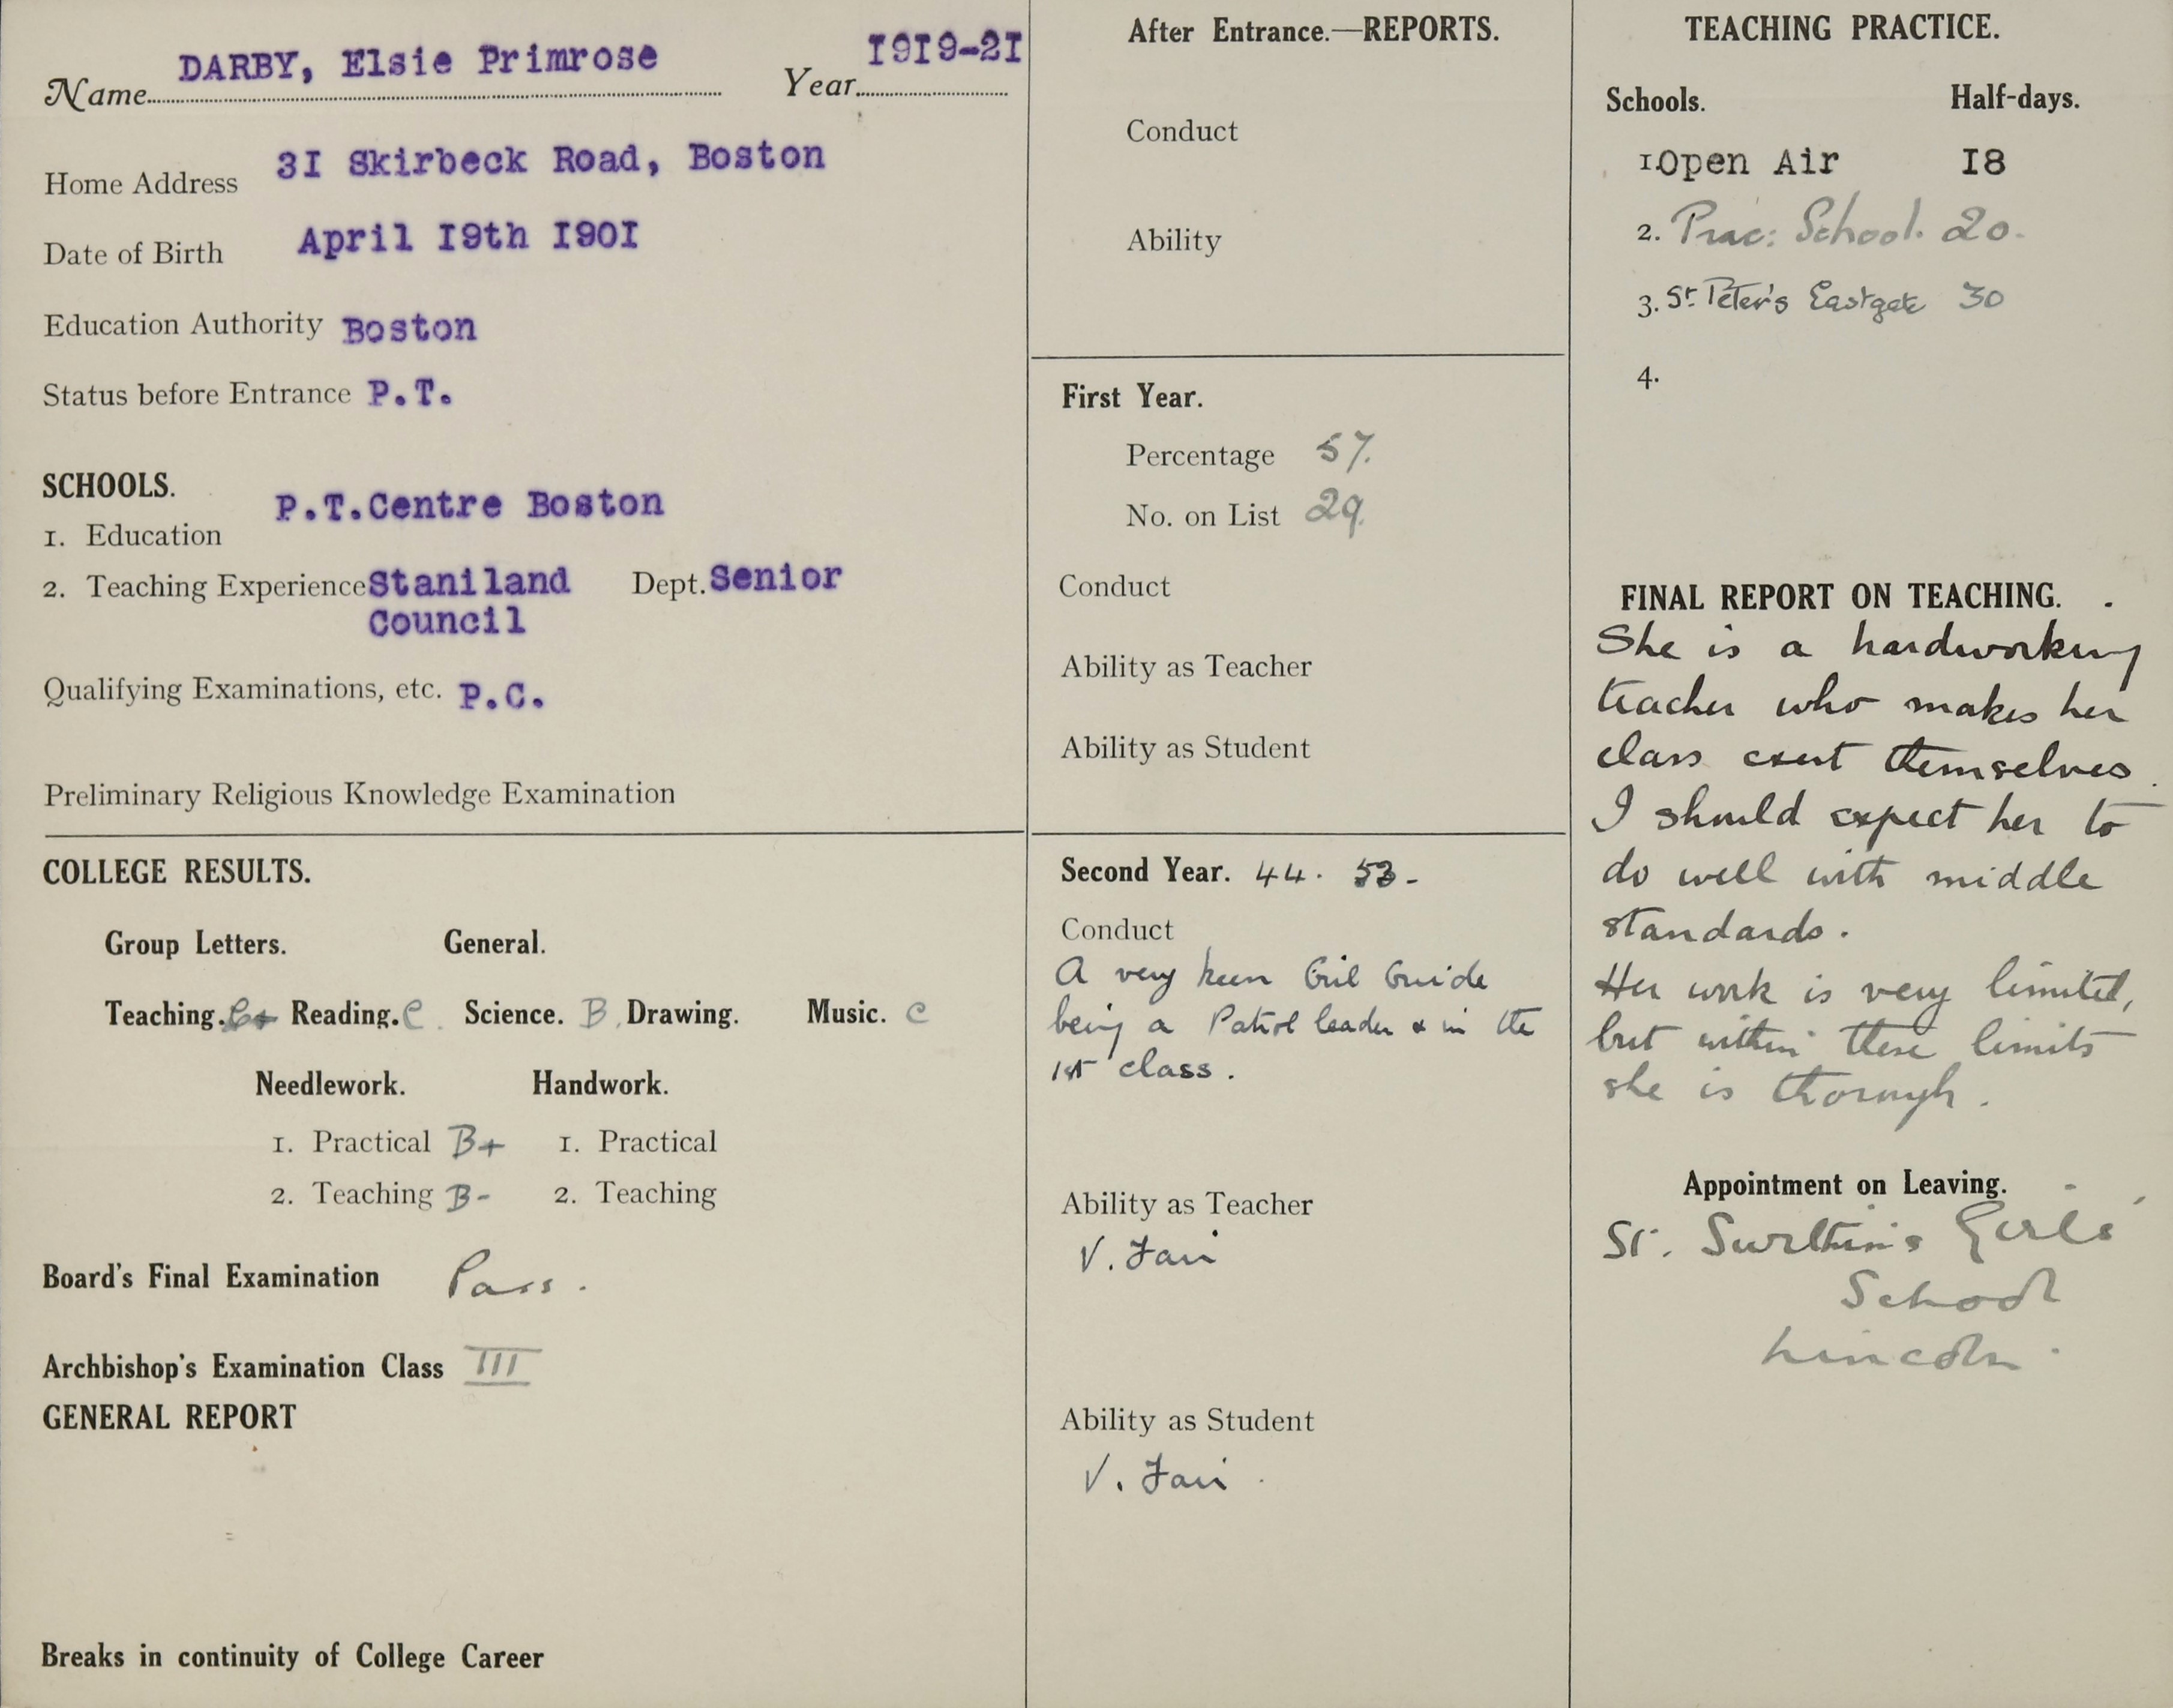 Name DARBY, Elsie Primrose Year 1919-21
Home Address 31 Skirbeck Road, Boston
Date of Birth April 19th 1901
Education Authority Boston
Status before Entrance P.T.
SCHOOLS.
1. Education P.T.Centre Boston
2. Teaching Experience Staniland Dept. Senior
Council
Qualifying Examinations, etc. P.C.
Preliminary Religious Knowledge Examination
COLLEGE RESULTS.
Group Letters. General.
Teaching. Reading. C Science. B Drawing. Music. C
Needlework. Handwork.
1. Practical B+ 1. Practical
2. Teaching B- 2. Teaching
Board's Final Examination Pass.
Archbishop's Examination Class III
GENERAL REPORT
Breaks in continuity of College Career
After Entrance.—REPORTS.
Conduct
Ability
First Year.
Percentage 57.
No. on List 29.
Conduct
Ability as Teacher
Ability as Student
Second Year. 44. 53-
Conduct
A very keen Girl Guide
being a Patrol leader & in the
1st class.
Ability as Teacher
V. Fair
Ability as Student
V. Fair.
TEACHING PRACTICE.
Schools. Half-days.
1. Open Air 18
2. Prac: School. 20.
3. St Peter's Eastgate 30
4.
FINAL REPORT ON TEACHING.
She is a hardworking
teacher who makes her
class exert themselves.
I should expect her to
do well with middle
standards.
Her work is very limited,
but within these limits
she is thorough.
Appointment on Leaving.
St. Swithin's Girls'
School
Lincoln.